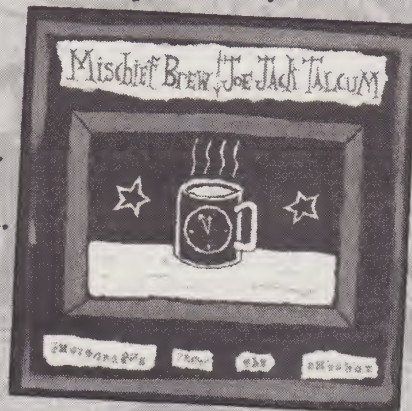 Mischief Brew! Joe Jack Talcum
PHOTOGRAPHS FROM THE SHOEBOX